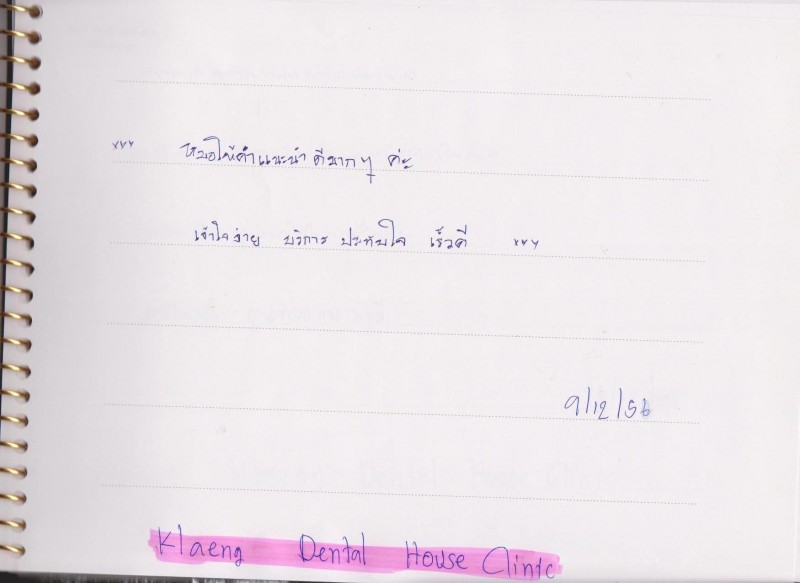 *** หมอให้คำแนะนำ ดีมากๆ ค่ะ
เข้าใจง่าย บริการ ประทับใจ เร็วดี ***
9/12/56
Klaeng Dental House Clinic